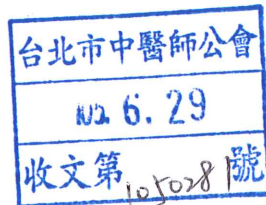 台北市中醫師公會
105. 6. 29
收文第1050281號